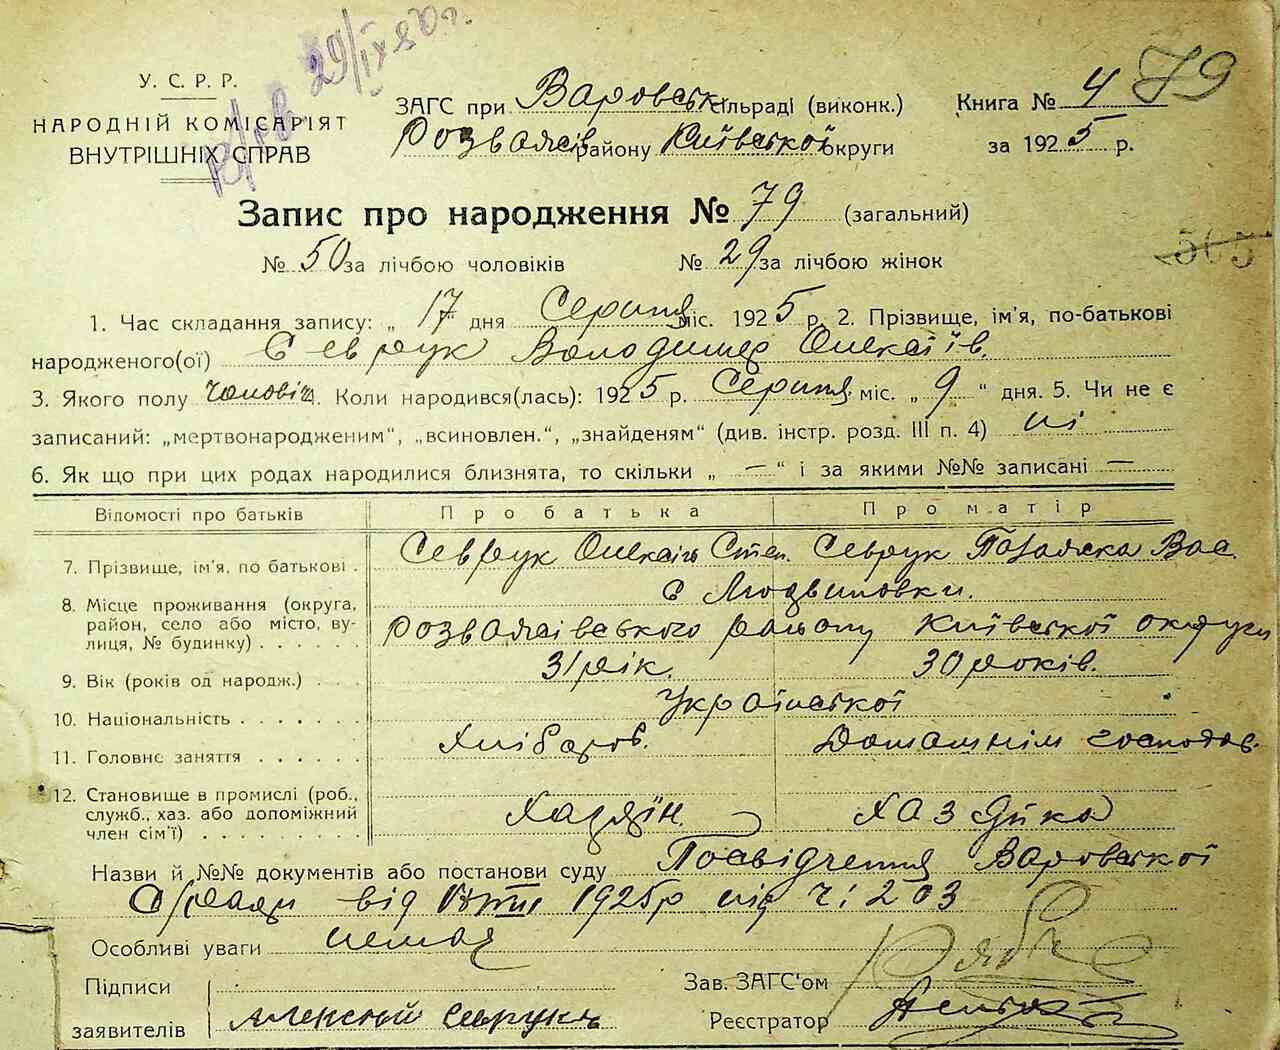 29/IX 80 г.
У. С. Р. Р.
НАРОДНІЙ КОМІСАРІЯТ
ВНУТРІШНІХ СПРАВ
ЗАГС при Варовськ сільраді (виконк.) Книга № 4 79
Розважів району Київської округи за 1925 р.
Запис про народження № 79 (загальний)
№ 50 за лічбою чоловіків № 29 за лічбою жінок
505
1. Час складання запису: „ 17 дня Серпня міс. 1925 р. 2. Прізвище, ім'я, по-батькові
народженого(ої) Севрук Володимир Олексіїв.
3. Якого полу чоловіч. 4. Коли народився(лась): 1925 р. Серпня міс. „ 9 “ дня. 5. Чи не є
записаний: „мертвонародженим“, „всиновлен.“, „знайденям“ (див. інстр. розд. III п. 4) ні
6. Як що при цих родах народилися близнята, то скільки „ — “ і за якими №№ записані —
Відомості про батьків Про батька Про матір
7. Прізвище, ім'я, по батькові . Севрук Олексій Степ. Севрук Вас.
8. Місце проживання (округа, район, село або місто, вулиця, № будинку) . . . . . . с Людвиновки.
Розважівського району Київської округи
9. Вік (років од народж.) . . . 31 рік. 30 років.
10. Національність . . . . . . . Української
11. Головне заняття . . . . . . Хлібороб. Домашнім господар.
12. Становище в промислі (роб., служб., хаз. або допоміжний член сім'ї) . . . . . . . . . Хазяїн. Хазяйка
Назви й №№ документів або постанови суду Посвідчення Варовської
С/ради від 1925 р під ч: 203
Особливі уваги немає
Підписи Зав. ЗАГС'ом
заявителів Алексей Севрукъ Реєстратор